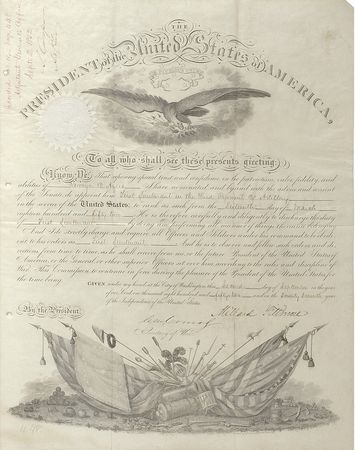 THE
PRESIDENT of the United States of AMERICA,
To all who shall see these presents greeting:
Know Ye, That reposing special trust and confidence in the patriotism, valor, fidelity and
abilities of I have nominated and by and with the advice and consent
of the Senate do appoint him First Lieutenant in the Third Regiment of Artillery
in the service of the United States: to rank as such from the day of March
eighteen hundred and fifty two. He is therefore carefully and diligently to discharge the duty
of First Lieutenant by doing and performing all manner of things thereunto belonging.
And I do strictly charge and require all Officers and Soldiers under his command to be obedi-
ent to his orders as First Lieutenant. And he is to observe and follow such orders and di-
rections from time to time, as he shall receive from me, or the future President of the United States of
America, or the General or other superior Officers set over him, according to the rules and discipline of
War. This Commission to continue in force during the pleasure of the President of the United States for
the time being.
GIVEN under my hand at the City of Washington this second day of September in the year
of our Lord one thousand eight hundred and fifty two and in the seventy seventh year
of the Independence of the United States.
By the President
Millard Fillmore
Secretary of War